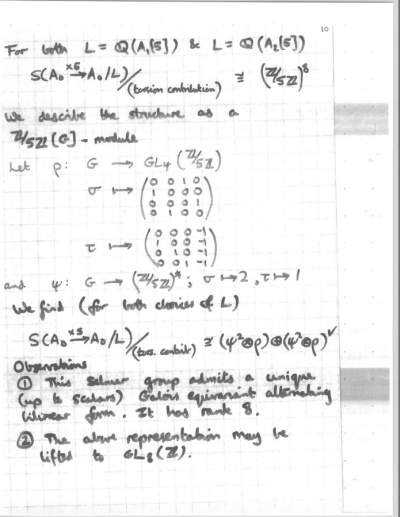 10
For both L = Q(A₁[5]) & L = Q(A₂[5])
S(A₀ →^{×5} A₀/L)/(torsion contribution) ≅ (Z/5Z)⁸
We describe the structure as a
Z/5Z[G] - module
Let ρ: G → GL₄(Z/5Z)
σ ↦ (0 0 1 0
1 0 0 0
0 0 0 1
0 1 0 0)
τ ↦ (0 0 0 -1
1 0 0 -1
0 1 0 -1
0 0 1 -1)
and ψ: G → (Z/5Z)*; σ ↦ 2, τ ↦ 1
We find (for both choices of L)
S(A₀ →^{×5} A₀/L)/(tors. contrib.) ≅ (ψ²⊗ρ)⊕(ψ²⊗ρ)^∨
Observations
① This Selmer group admits a unique
(up to scalars) Galois equivariant alternating
bilinear form. It has rank 8.
② The above representation may be
lifted to GL₈(Z).